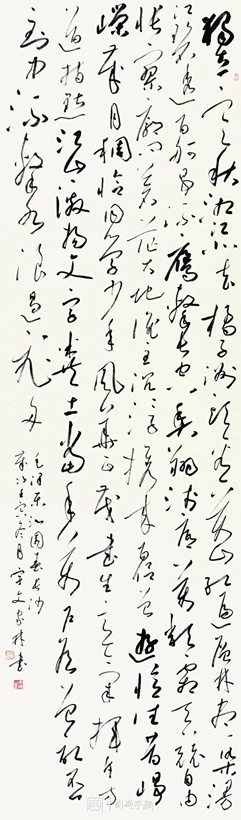 独立寒秋湘江北去橘子洲头看万山红遍层林尽染漫
江碧透百舸争流鹰击长空鱼翔浅底万类霜天竞自由
怅寥廓问苍茫大地谁主沉浮携来百侣曾游忆往昔峥
嵘岁月稠恰同学少年风华正茂书生意气挥斥方
遒指点江山激扬文字粪土当年万户侯曾记否
到中流击水浪遏飞舟
毛泽东沁园春长沙